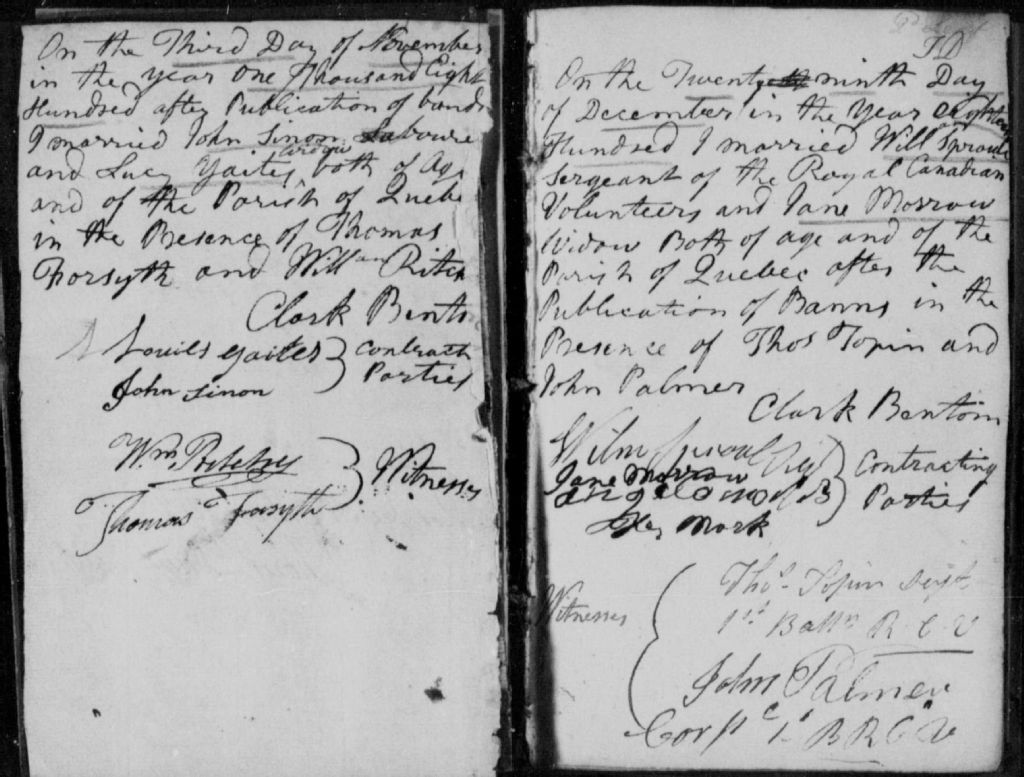 On the Third Day of November
in the year one Thousand Eight
Hundred after Publication of bands
I married John Sinon Laboure
and Lucy Yaites both of Age
and of the Parish of Quebe
in the Presence of Thomas
Forsyth and Willam Ritch
Clark Bento
Louies yaites
John Sinon
Contractg
Parties
Wm. Ritchy
Thomas Forsyth
Witnesses
JD
On the Twenty ninth Day
of December in the Year eighteen
Hundred I married Will Sproule
Sergeant of the Royal Canadian
Volunteers and Jane Morrow
Widow Both of age and of the
Parish of Quebec after the
Publication of Banns in the
Presence of Thos Topin and
John Palmer
Clark Bentom
Jane Morrow
Mark
Contracting
Parties
Witnesses
Thos. Topin Serjt
1st Battn R C V
John Palmer
Corpl 1t B R C V